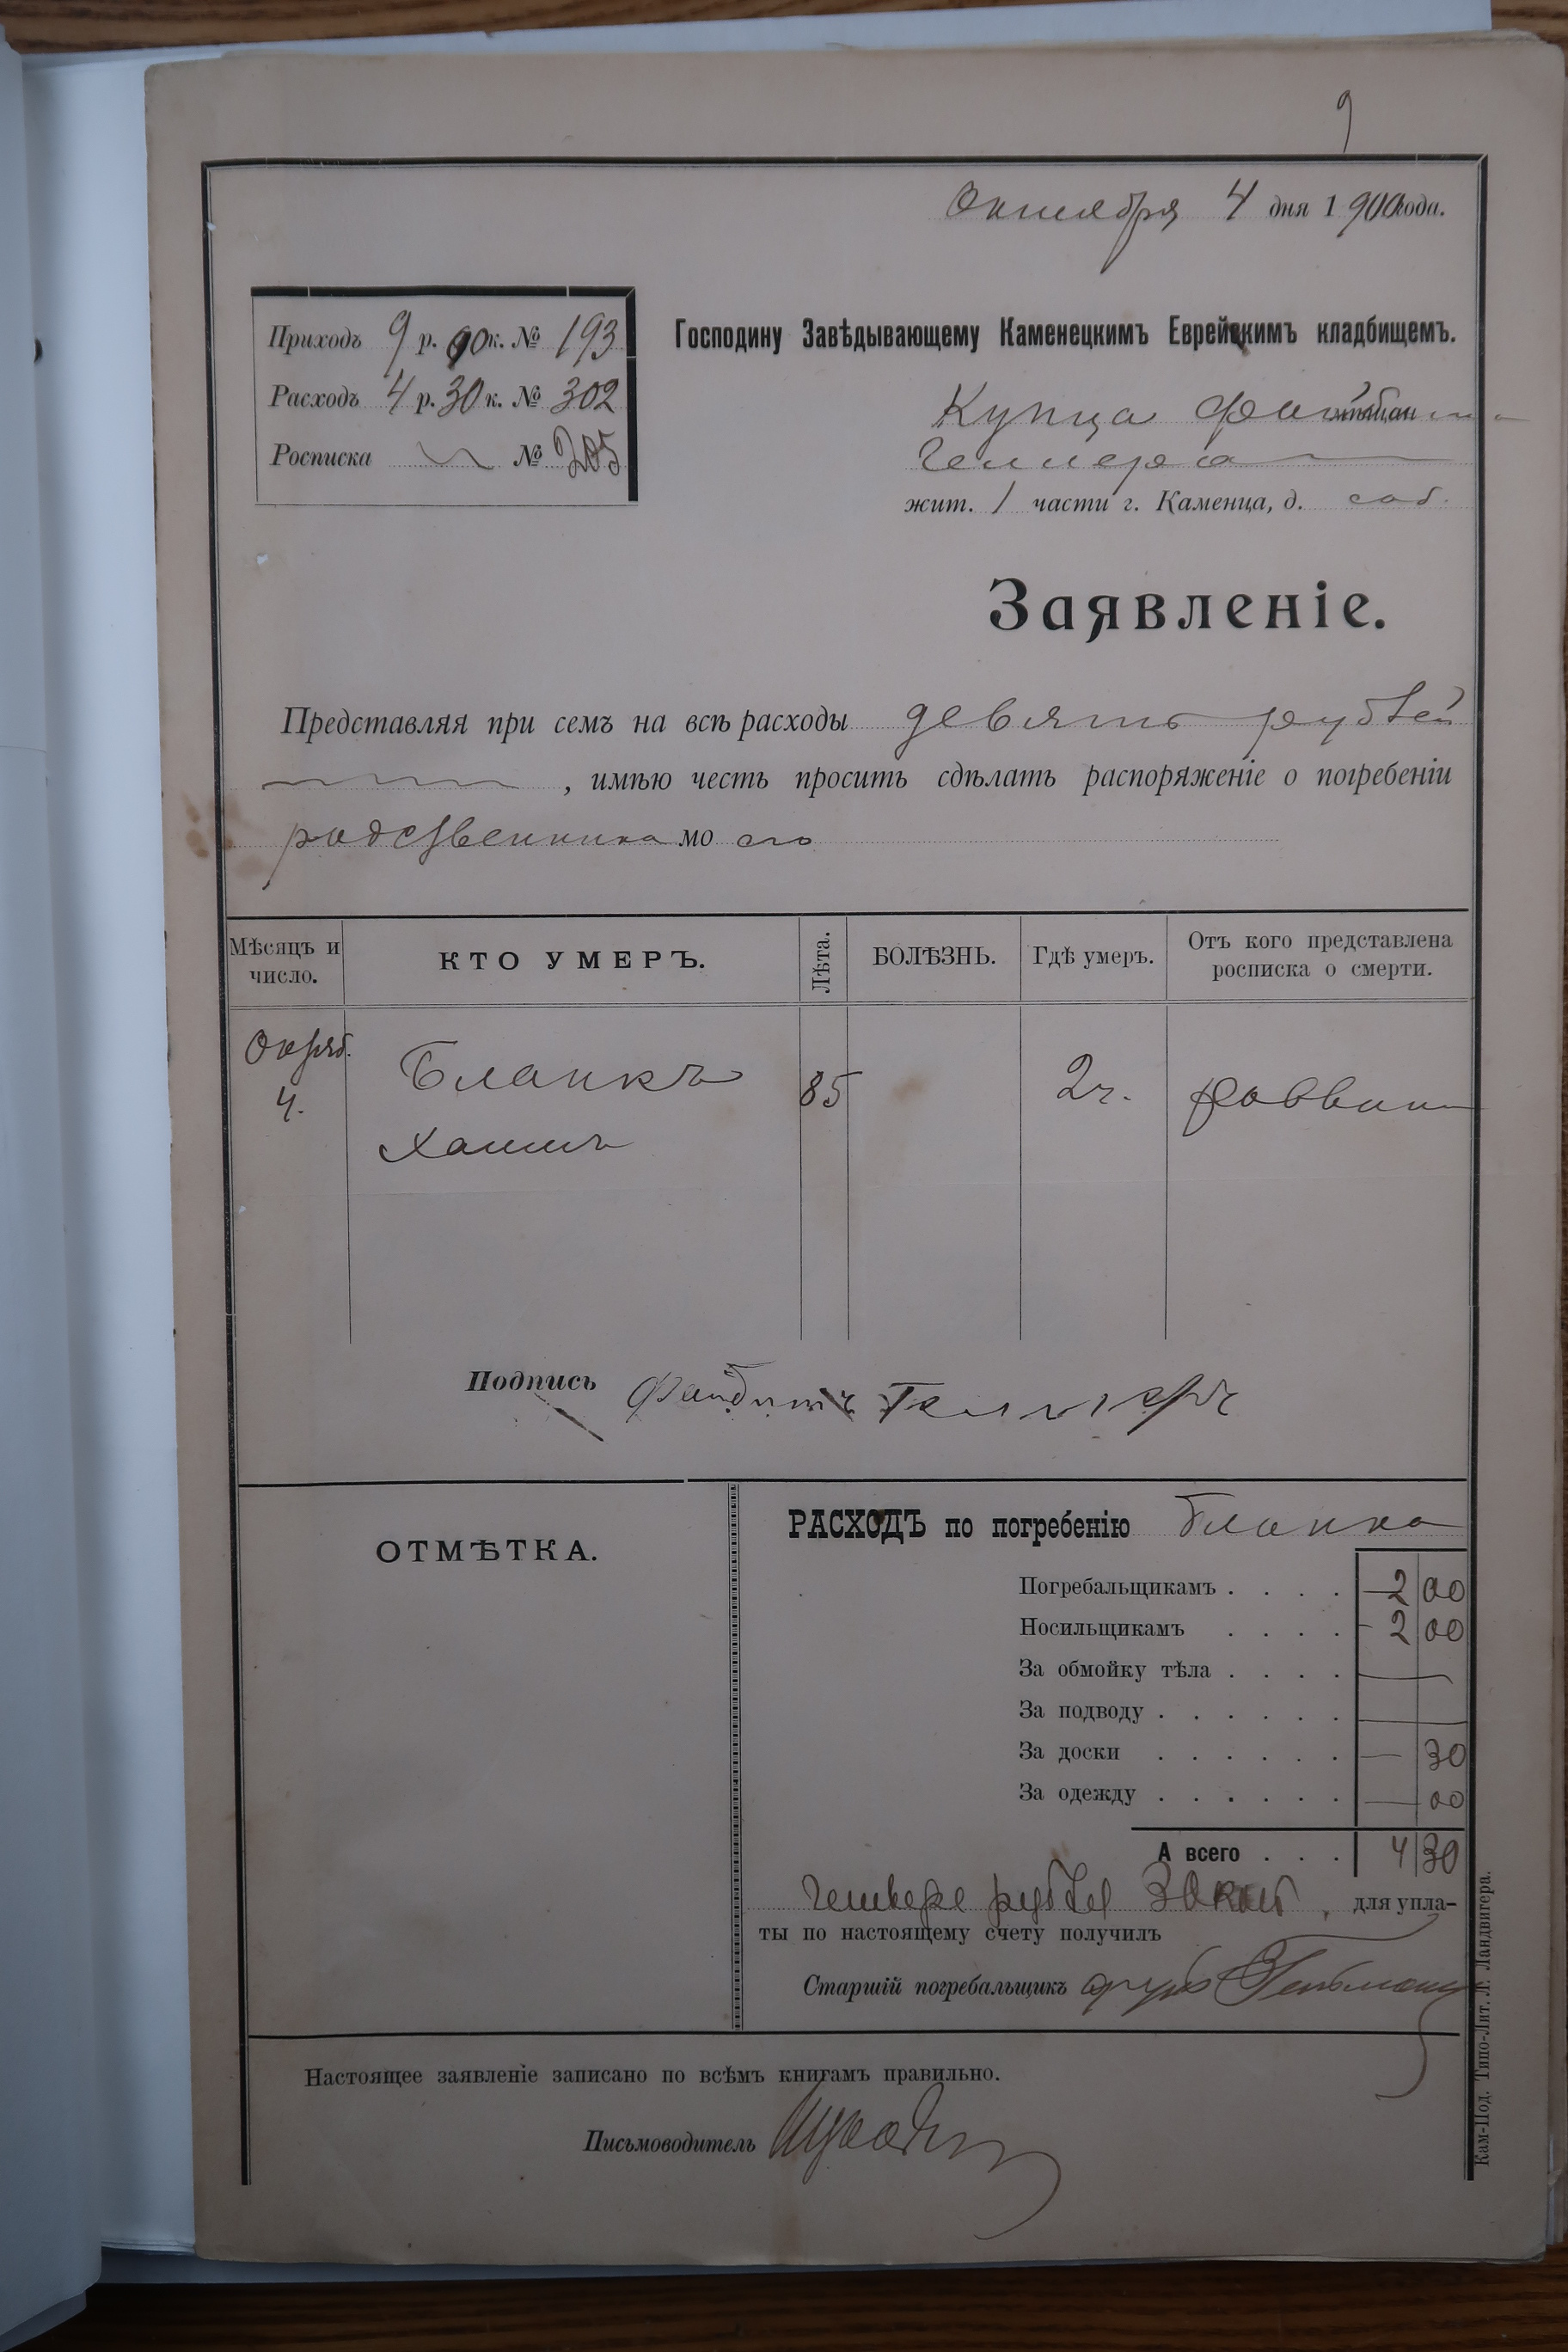 9
Октября 4 дня 1900 года.
Приходъ 9 р. 00 к. № 193
Расходъ 4 р. 30 к. № 302
Росписка № 205
Господину Завѣдывающему Каменецкимъ Еврейскимъ кладбищемъ.
Купца
жит. 1 части г. Каменца, д. соб.
Заявленіе.
Представляя при семъ на всѣ расходы девять рублей
, имѣю честь просить сдѣлать распоряженіе о погребеніи
родственника моего
Мѣсяцъ и число.
КТО УМЕРЪ.
Лѣта.
БОЛѢЗНЬ.
Гдѣ умеръ.
Отъ кого представлена росписка о смерти.
Октяб. 4.
Бланкъ
Хаимъ
85
2 ч.
раввин
Подпись
ОТМѢТКА.
РАСХОДЪ по погребенію Бланка
Погребальщикамъ . . . . 2 00
Носильщикамъ . . . . 2 00
За обмойку тѣла . . . . —
За подводу . . . . . . —
За доски . . . . . . — 30
За одежду . . . . . . — 00
А всего . . . 4 30
Четыре рубля 30 коп., для упла-
ты по настоящему счету получилъ
Старшій погребальщикъ
Настоящее заявленіе записано по всѣмъ книгамъ правильно.
Письмоводитель
Кам-Под. Типо-Лит. Л. Ландвигера.